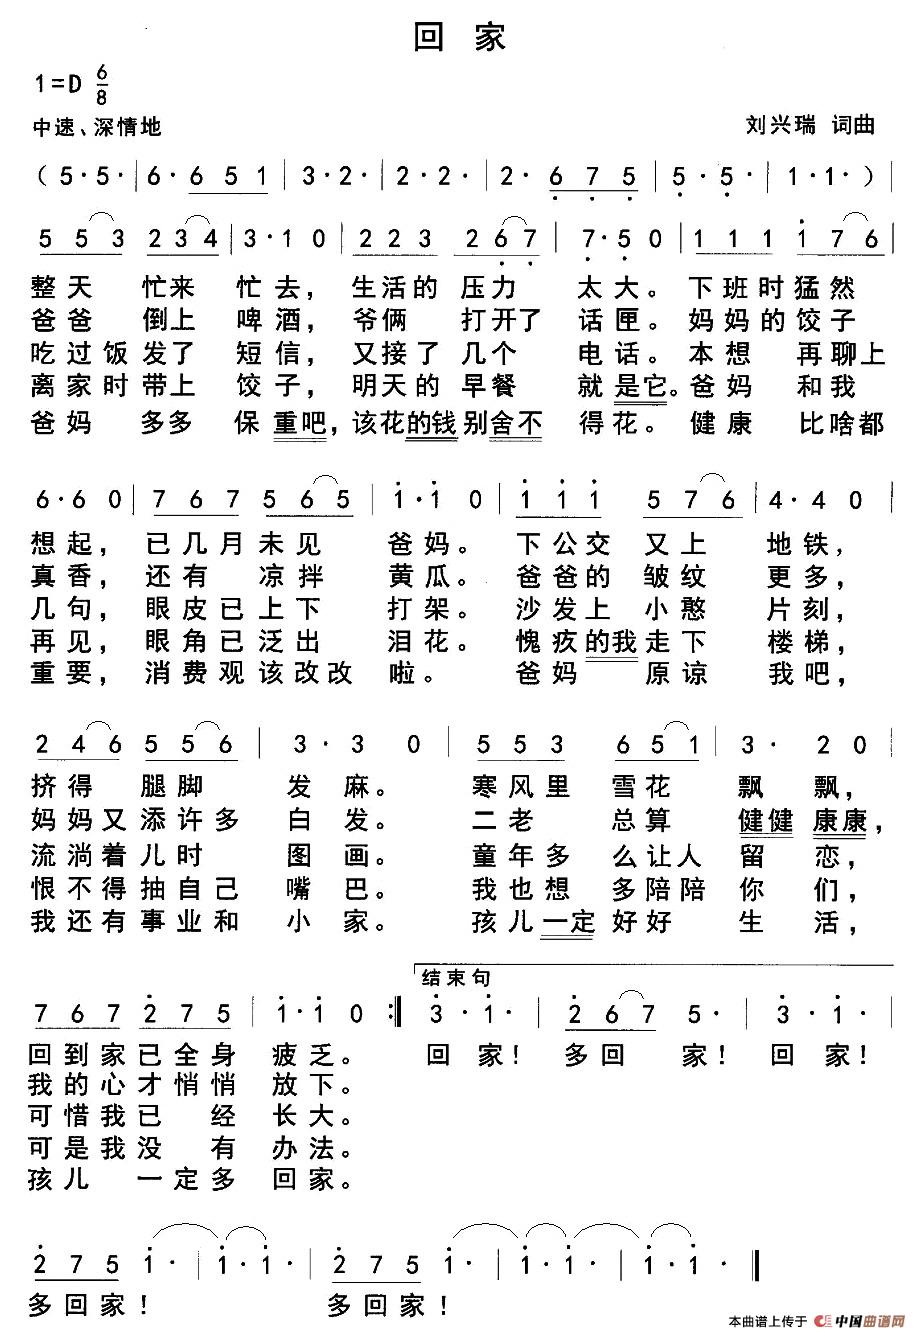 回 家
1=D 6/8
中速、深情地
刘兴瑞 词曲
( 5· 5· | 6· 6 5 1 | 3· 2· | 2· 2· | 2· 6 7 5 | 5· 5· | 1· 1· ) |
5 5 3 2 3 4 | 3· 1 0 | 2 2 3 2 6 7 | 7· 5 0 | 1 1 1 1 7 6 |
整天 忙来 忙去, 生活的 压力 太大。下班时猛然
爸爸 倒上 啤酒, 爷俩 打开了 话匣。妈妈的饺子
吃过饭发了 短信, 又接了 几个 电话。本想 再聊上
离家时带上 饺子, 明天的 早餐 就是它。爸妈 和我
爸妈 多多 保重吧,该花的钱别舍不得花。健康 比啥都
6· 6 0 | 7 6 7 5 6 5 | 1· 1 0 | 1 1 1 5 7 6 | 4· 4 0 |
想起, 已几月未见 爸妈。 下公交 又上 地铁,
真香, 还有 凉拌 黄瓜。 爸爸的 皱纹 更多,
几句, 眼皮已上下 打架。 沙发上 小憨 片刻,
再见, 眼角已泛出 泪花。 愧疚的我走下 楼梯,
重要, 消费观该改改 啦。 爸妈 原谅 我吧,
2 4 6 5 5 6 | 3· 3 0 | 5 5 3 6 5 1 | 3· 2 0 |
挤得 腿脚 发麻。 寒风里 雪花 飘飘,
妈妈又添许多 白发。 二老 总算 健健康康,
流淌着儿时 图画。 童年多么让人 留恋,
恨不得抽自己 嘴巴。 我也想 多陪陪 你们,
我还有事业和 小家。 孩儿一定好好 生活,
结束句
7 6 7 2 7 5 | 1· 1 0 :| 3· 1· | 2 6 7 5· | 3· 1· |
回到家已全身 疲乏。 回家! 多回 家! 回家!
我的心才悄悄 放下。
可惜我已 经 长大。
可是我没 有 办法。
孩儿 一定多 回家。
2 7 5 1· | 1· 1· | 2 7 5 1· | 1· 1· | 1· 1· |
多回家! 多回家!
本曲谱上传于 中国曲谱网